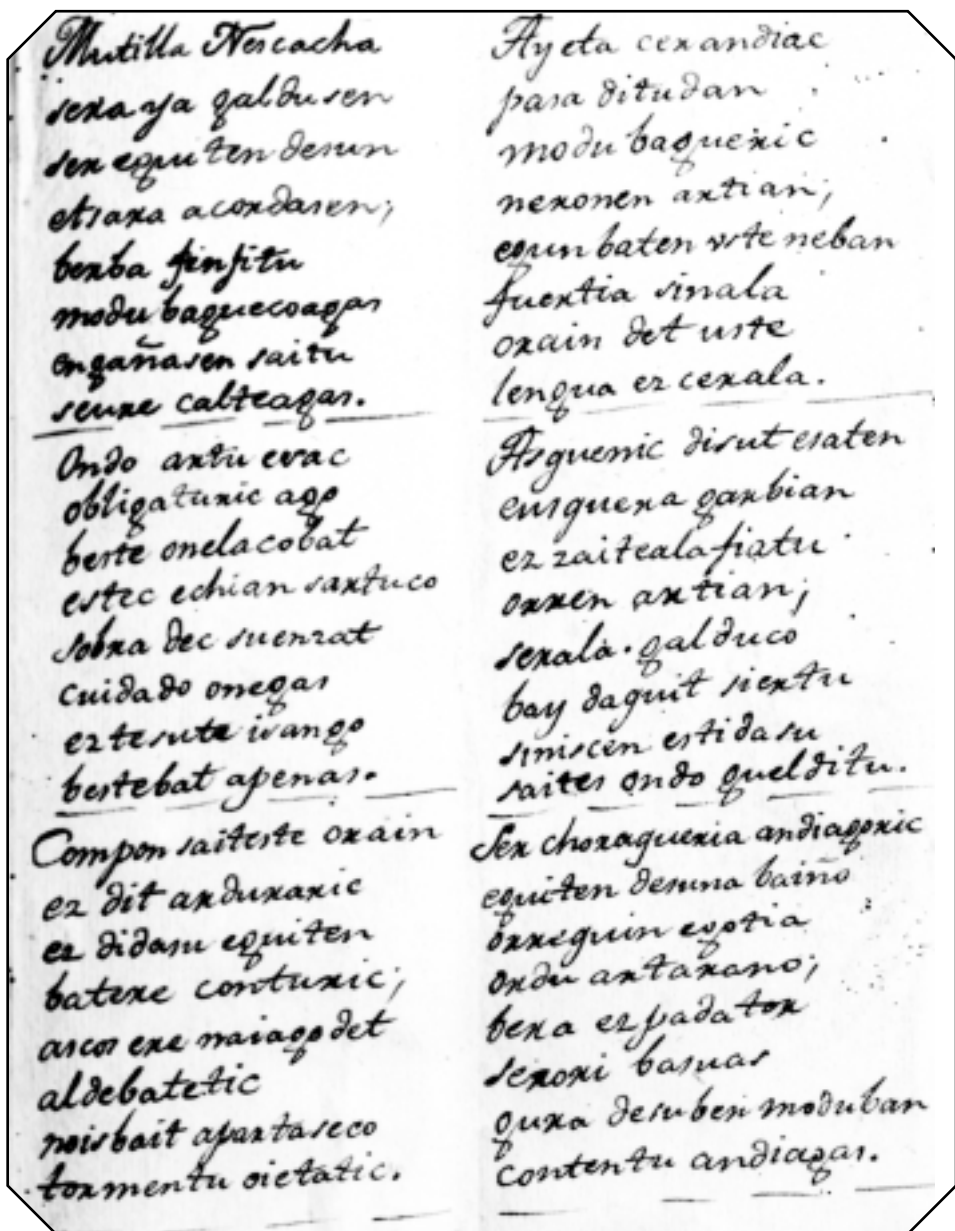 Mutilla Nescacha
sera ya galdusen
ser eguiten desun
etsara acordasen;
berba finfitu
modu baguecoagas
engañasen saitu
seure calteagas.
Ondo artu evac
obligaturic ago
beste onelacobat
estec echian sartuco
sobra dec suenzat
cuidado onegas
ez tesute izango
bestebat apenas.
Compon saiteste orain
ez dit arduraric
ez didasu eguiten
batere conturic;
ascos ere naiago det
aldebatetic
noisbait apartaseco
tormentu oietatic.
Ayeta cerandiac
pasa ditudan
modu bagueric
neronen artian;
egun baten uste neban
fuertia sinala
orain det uste
lengua ez cerala.
Asguenic disut esaten
eusguera garbian
ez zaiteala fiatu
orren artian;
serala galduco
bay daguit siertu
siniscen estidasu
saites ondo guelditu.
Ser choragueria andiagoric
eguiten desuna baiño
orreguin egotia
ordu artarano;
bera ez padator
serori basuas
gura desuben moduban
contentu andiagas.